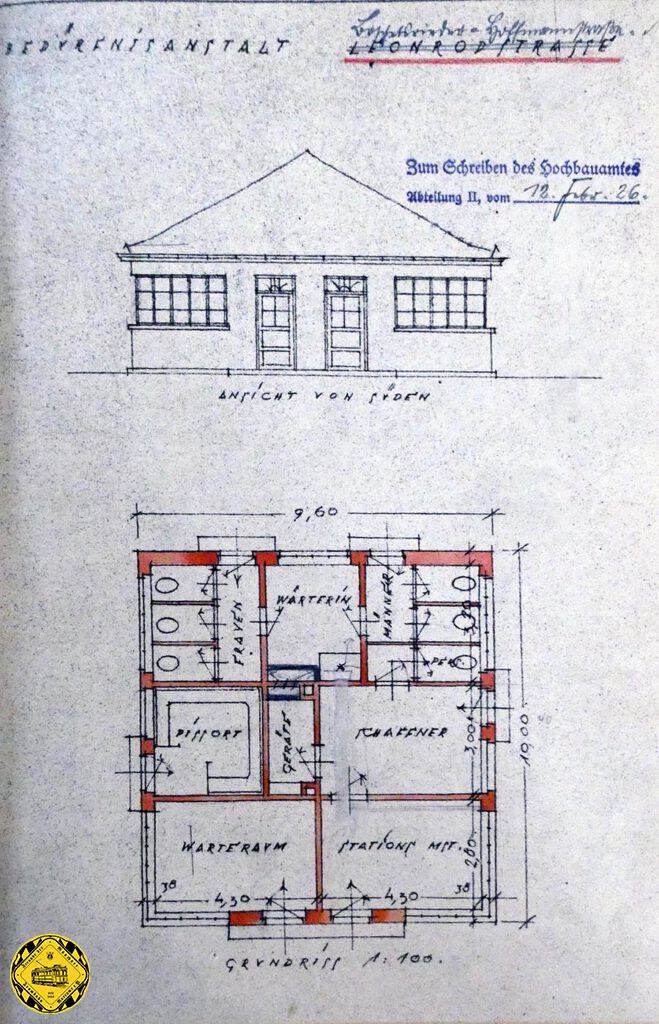 BEDÜRFNISANSTALT
Boschetsrieder - Hoffmannstraße.
LEONRODSTRASSE
Zum Schreiben des Hochbauamtes
Abteilung II, vom 12. Febr. 26.
ANSICHT VON SÜDEN
9,60
FRAUEN
WÄRTERIN
MÄNNER
PERS.
PISSORT
GERÄTE
SCHAFFNER
3,00
10,00
40
WARTERAUM
STATIONS MST.
2,80
38
4,30
4,30
38
GRUNDRISS 1:100.